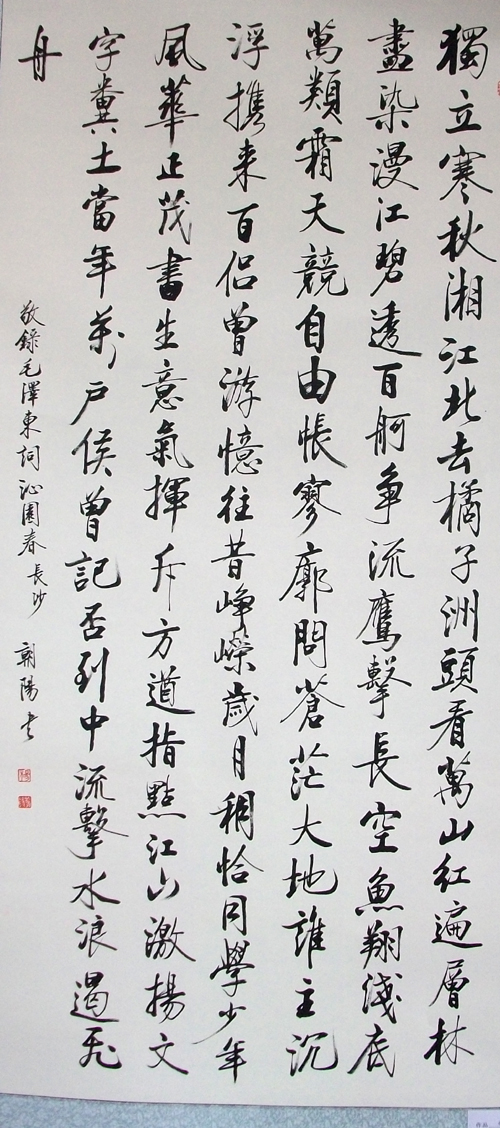 獨立寒秋湘江北去橘子洲頭看萬山紅遍層林
盡染漫江碧透百舸爭流鷹擊長空魚翔淺底
萬類霜天競自由悵寥廓問蒼茫大地誰主沉
浮携来百侣曾游憶往昔崢嶸歲月稠恰同學少年
風華正茂書生意氣揮斥方遒指點江山激揚文
字糞土當年萬戶侯曾記否到中流擊水浪遏飛
舟
敬錄毛澤東詞沁園春長沙 朝陽书